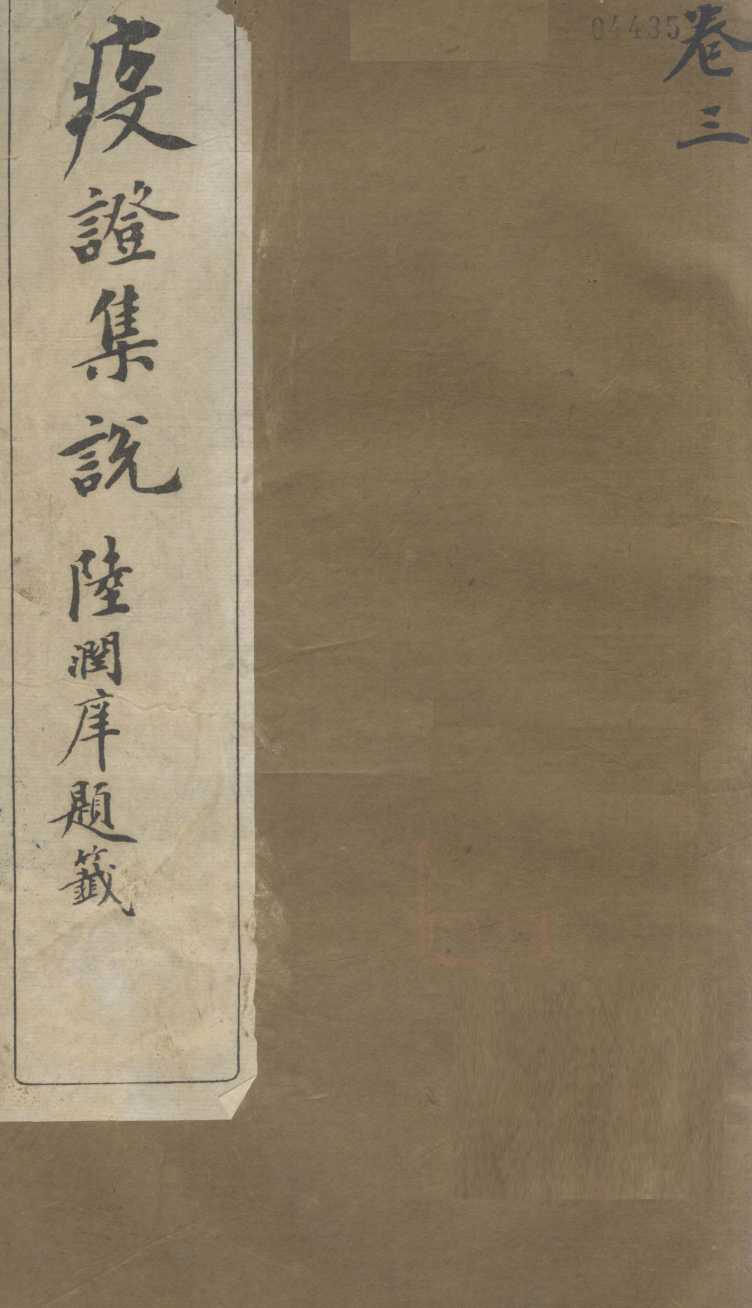 卷三
04435
疫證集說
陸潤庠題籤